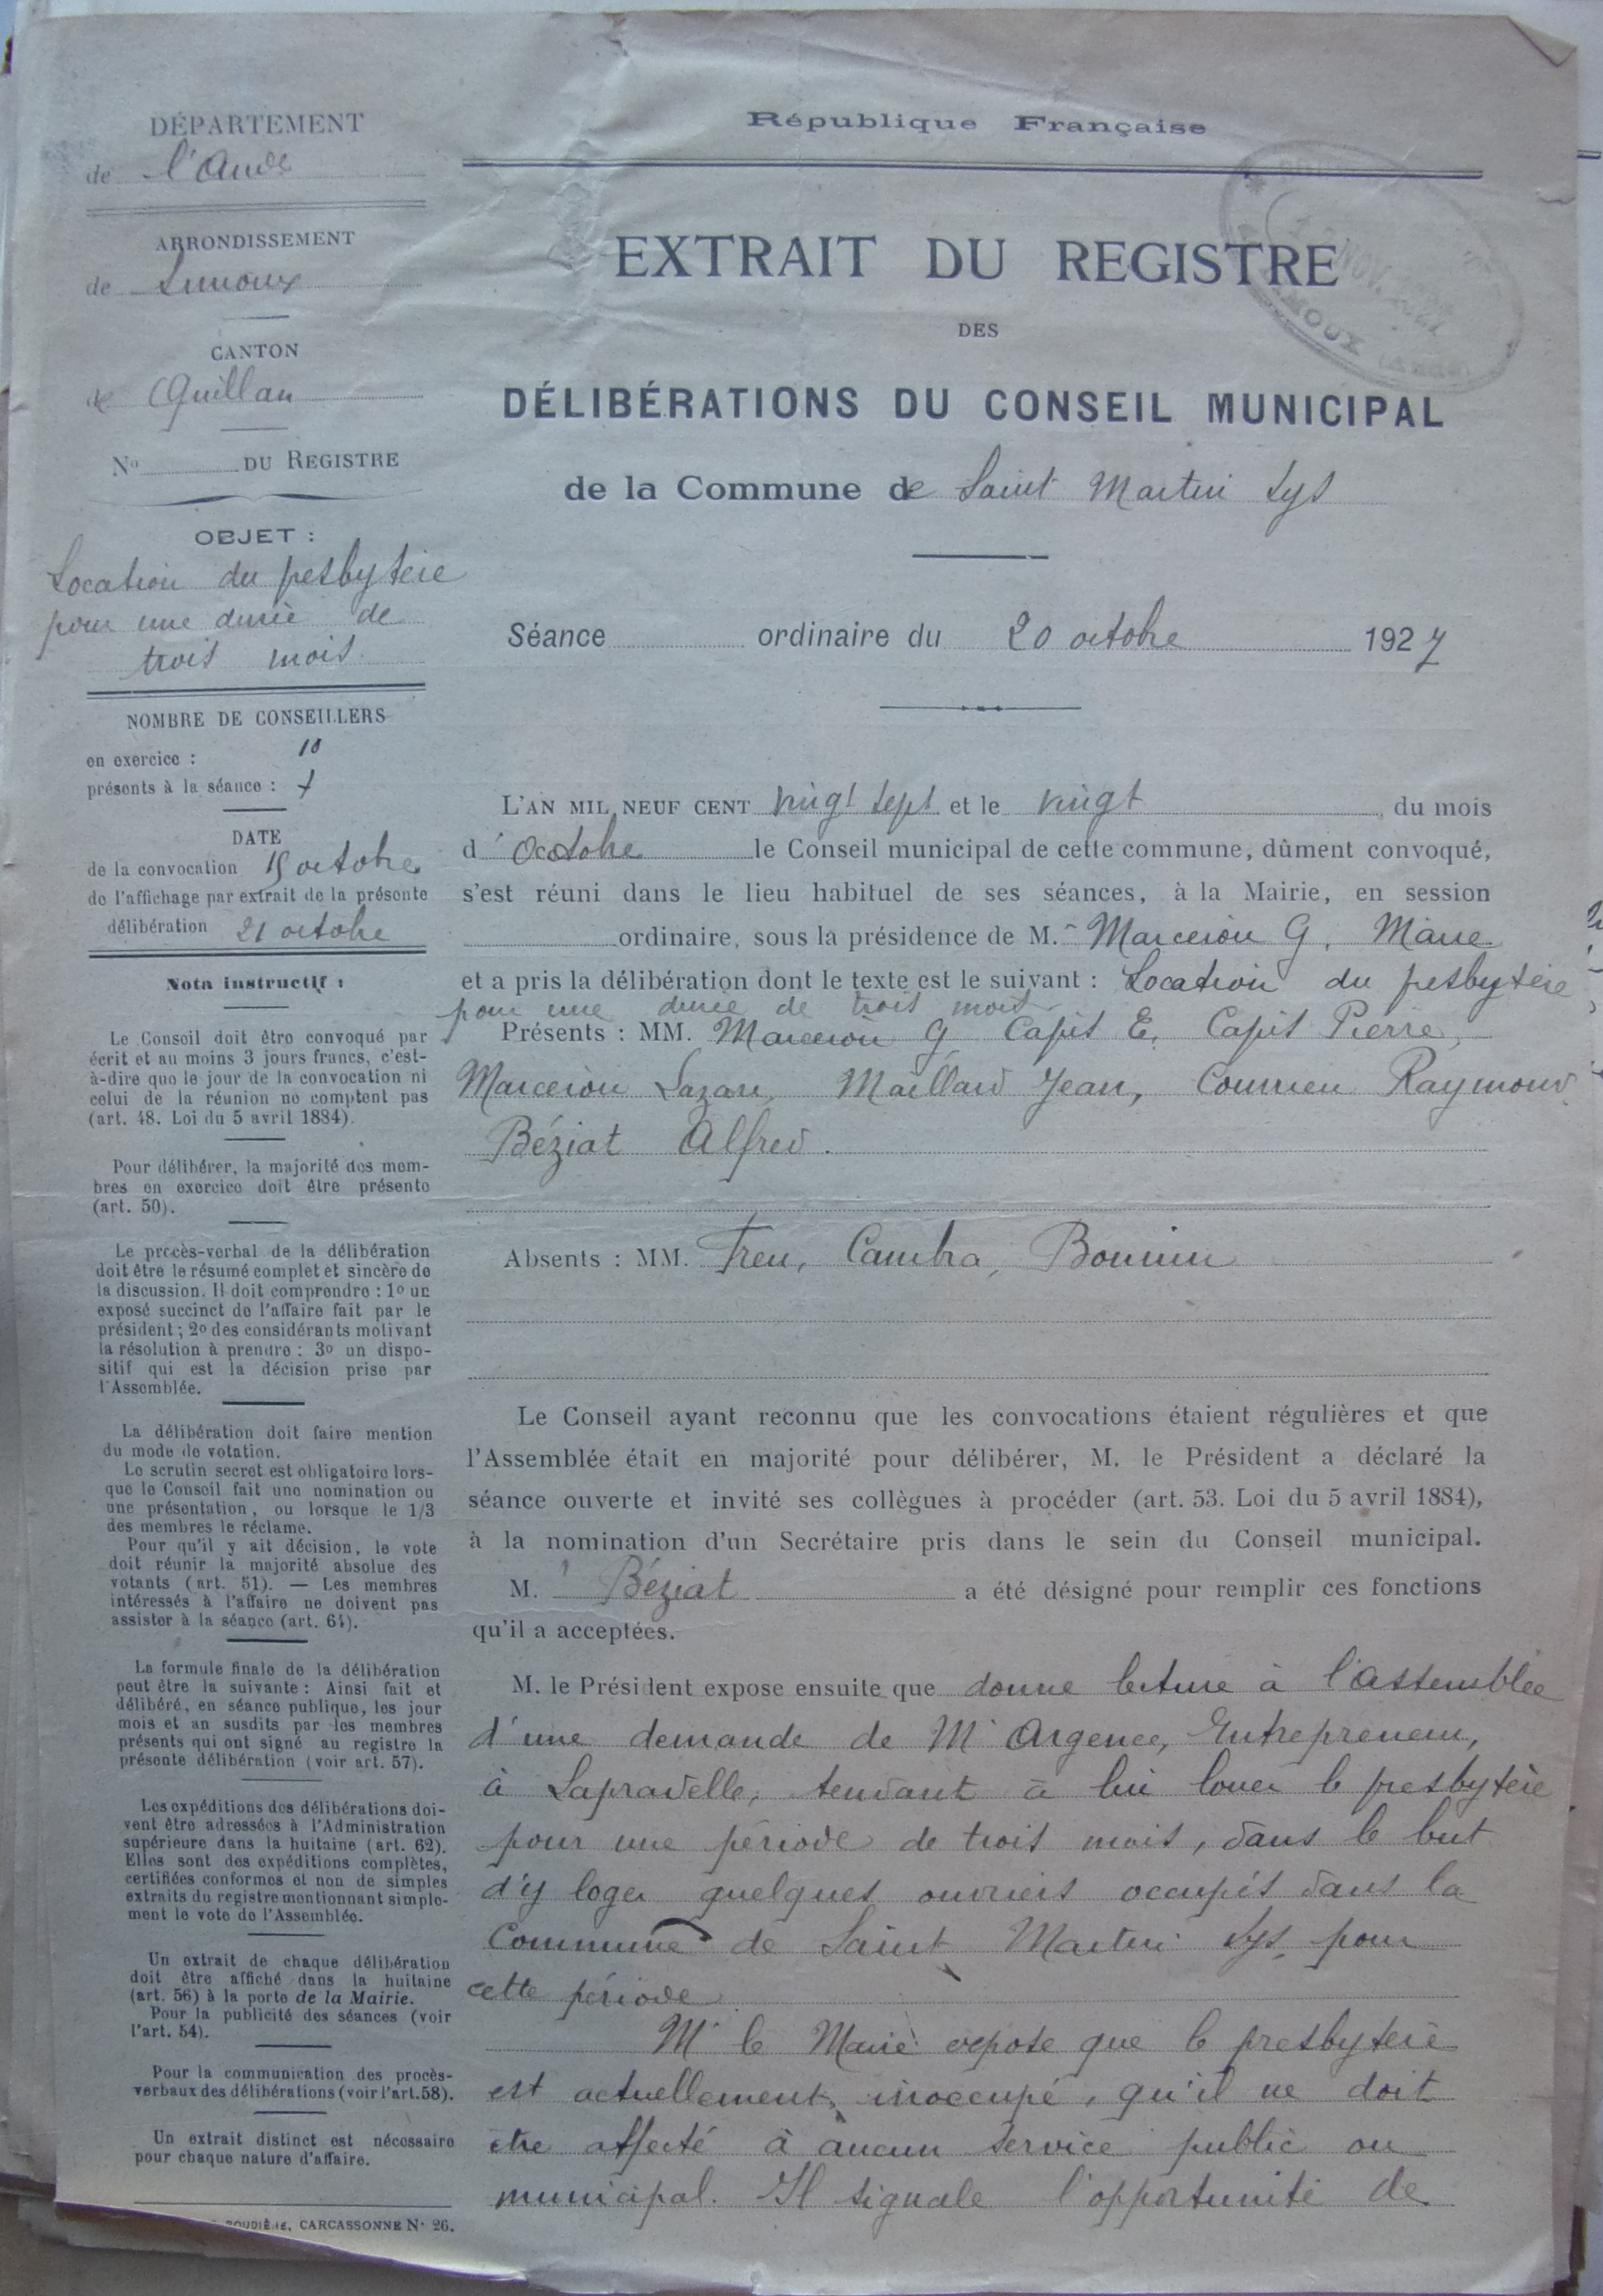 DÉPARTEMENT
de l'Aude
ARRONDISSEMENT
de Limoux
CANTON
de Quillan
No DU REGISTRE
OBJET :
Location du presbytère
pour une durée de
trois mois.
NOMBRE DE CONSEILLERS
en exercice : 10
présents à la séance : 7
DATE
de la convocation 15 octobre
de l'affichage par extrait de la présente
délibération 21 octobre
Nota instructif :
Le Conseil doit être convoqué par
écrit et au moins 3 jours francs, c'est-
à-dire que le jour de la convocation ni
celui de la réunion ne comptent pas
(art. 48. Loi du 5 avril 1884).
Pour délibérer, la majorité des mem-
bres en exercice doit être présente
(art. 50).
Le procès-verbal de la délibération
doit être le résumé complet et sincère de
la discussion. Il doit comprendre : 1o un
exposé succinct de l'affaire fait par le
président ; 2o des considérants motivant
la résolution à prendre : 3o un dispo-
sitif qui est la décision prise par
l'Assemblée.
La délibération doit faire mention
du mode de votation.
Le scrutin secret est obligatoire lors-
que le Conseil fait une nomination ou
une présentation, ou lorsque le 1/3
des membres le réclame.
Pour qu'il y ait décision, le vote
doit réunir la majorité absolue des
votants (art. 51). — Les membres
intéressés à l'affaire ne doivent pas
assister à la séance (art. 64).
La formule finale de la délibération
peut être la suivante : Ainsi fait et
délibéré, en séance publique, les jour
mois et an susdits par les membres
présents qui ont signé au registre la
présente délibération (voir art. 57).
Les expéditions des délibérations doi-
vent être adressées à l'Administration
supérieure dans la huitaine (art. 62).
Elles sont des expéditions complètes,
certifiées conformes et non de simples
extraits du registre mentionnant simple-
ment le vote de l'Assemblée.
Un extrait de chaque délibération
doit être affiché dans la huitaine
(art. 56) à la porte de la Mairie.
Pour la publicité des séances (voir
l'art. 54).
Pour la communication des procès-
verbaux des délibérations (voir l'art. 58).
Un extrait distinct est nécessaire
pour chaque nature d'affaire.
CARCASSONNE No 26.
République Française
NOV.
LIMOUX
EXTRAIT DU REGISTRE
DES
DÉLIBÉRATIONS DU CONSEIL MUNICIPAL
de la Commune de Saint Martin Lys
Séance ordinaire du 20 octobre 1927
L'AN MIL NEUF CENT vingt sept et le vingt, du mois
d'Octobre le Conseil municipal de cette commune, dûment convoqué,
s'est réuni dans le lieu habituel de ses séances, à la Mairie, en session
ordinaire, sous la présidence de M. Marcerou G, Maire
et a pris la délibération dont le texte est le suivant : Location du presbytère
pour une durée de trois mois
Présents : MM. Marcerou G, Capit E, Capit Pierre,
Marcerou Lazare, Maillard Jean, Raymond
Béziat Alfred.
Absents : MM. Treu, Cambra,
Le Conseil ayant reconnu que les convocations étaient régulières et que
l'Assemblée était en majorité pour délibérer, M. le Président a déclaré la
séance ouverte et invité ses collègues à procéder (art. 53. Loi du 5 avril 1884),
à la nomination d'un Secrétaire pris dans le sein du Conseil municipal.
M. Béziat a été désigné pour remplir ces fonctions
qu'il a acceptées.
M. le Président expose ensuite que donne lecture à l'assemblée
d'une demande de Mr Argence, Entrepreneur,
à Lapradelle, tendant à lui louer le presbytère
pour une période de trois mois, dans le but
d'y loger quelques ouvriers occupés dans la
Commune de Saint Martin Lys, pour
cette période
Mr le Maire expose que le presbytère
est actuellement inoccupé, qu'il ne doit
être affecté à aucun service public ou
municipal. Il signale l'opportunité de